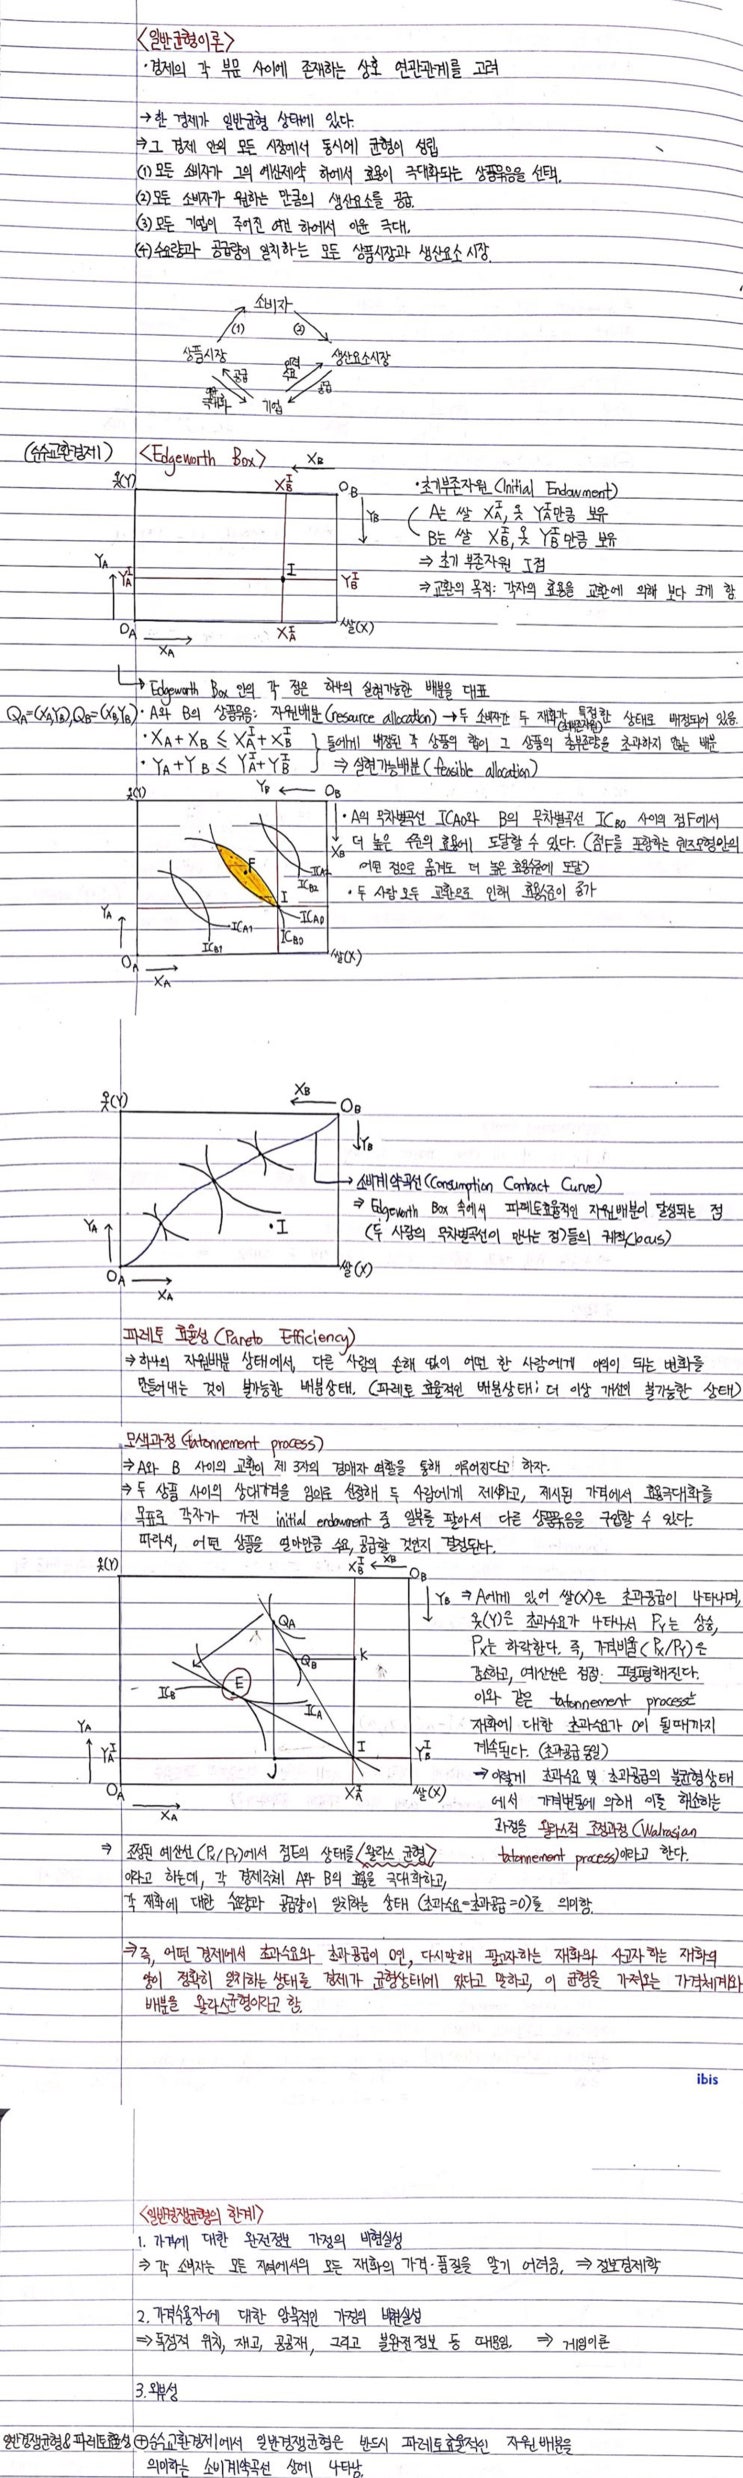 <일반균형이론>
·경제의 각 부문 사이에 존재하는 상호 연관관계를 고려
→한 경제가 일반균형 상태에 있다.
⇒그 경제 안의 모든 시장에서 동시에 균형이 성립
(1)모든 소비자가 그의 예산제약 하에서 효용이 극대화되는 상품묶음을 선택.
(2)모든 소비자가 원하는 만큼의 생산요소를 공급.
(3)모든 기업이 주어진 여건 하에서 이윤 극대.
(4)수요량과 공급량이 일치하는 모든 상품시장과 생산요소 시장.
소비자
(1) (2)
상품시장 생산요소시장
공급 수요 공급
극대화 기업
(순수교환경제) <Edgeworth Box>
XB
옷(Y) X_B^I OB
YB
YA Y_A^I I Y_B^I
OA X_A^I 쌀(X)
XA
·초기부존자원 (Initial Endowment)
A는 쌀 X_A^I, 옷 Y_A^I만큼 보유
B는 쌀 X_B^I, 옷 Y_B^I만큼 보유
⇒ 초기 부존자원 I점
⇒교환의 목적: 각자의 효용을 교환에 의해 보다 크게 함
Edgeworth Box 안의 각 점은 하나의 실현가능한 배분을 대표
QA=(XA,YA), QB=(XB,YB)·A와 B의 상품묶음: 자원배분(resource allocation)→두 소비자간 두 재화가 특정한 상태로 배정되어 있음.
·XA+XB ≤ X_A^I+X_B^I
·YA+YB ≤ Y_A^I+Y_B^I
둘에게 배정된 각 상품의 합이 그 상품의 총부존량을 초과하지 않는 배분
⇒ 실현가능배분(feasible allocation)
옷(Y) YB ← OB
XB
F I
ICA ICB2
ICA1 ICA0
ICB1 ICB0
YA
OA 쌀(X)
XA
·A의 무차별곡선 ICA0와 B의 무차별곡선 ICB0 사이의 점F에서
더 높은 수준의 효용에 도달할 수 있다. (점F를 포함하는 렌즈모형안의
어떤 점으로 옮겨도 더 높은 효용수준에 도달)
·두 사람 모두 교환으로 인해 효용수준이 증가
XB
옷(Y) OB
YB
YA
·I
OA 쌀(X)
XA
→소비계약곡선(Consumption Contract Curve)
⇒ Edgeworth Box 속에서 파레토효율적인 자원배분이 달성되는 점
(두 사람의 무차별곡선이 만나는 점)들의 궤적(locus)
파레토 효율성 (Pareto Efficiency)
→하나의 자원배분 상태에서, 다른 사람의 손해 없이 어떤 한 사람에게 이익이 되는 변화를
만들어내는 것이 불가능한 배분상태. (파레토 효율적인 배분상태; 더 이상 개선이 불가능한 상태)
모색과정 (tatonnement process)
⇒A와 B 사이의 교환이 제 3자의 경매자 역할을 통해 이루어진다고 하자.
⇒ 두 상품 사이의 상대가격을 임의로 설정해 두 사람에게 제시하고, 제시된 가격에서 효용극대화를
목표로 각자가 가진 initial endowment 중 일부를 팔아서 다른 상품묶음을 구입할 수 있다.
따라서, 어떤 상품을 얼마만큼 수요, 공급할 것인지 결정된다.
옷(Y) X_B^I XB OB
YB
QA
QB K
E
ICB ICA
YA
Y_A^I J I Y_B^I
OA X_A^I 쌀(X)
XA
⇒A에게 있어 쌀(X)은 초과공급이 나타나며,
옷(Y)은 초과수요가 나타나서 PY는 상승,
PX는 하락한다. 즉, 가격비율(PX/PY)은
감소하고, 예산선은 점점 평평해진다.
이와 같은 tatonnement process는
재화에 대한 초과수요가 0이 될때까지
계속된다. (초과공급 동일)
→이렇게 초과수요 및 초과공급의 불균형상태
에서 가격변동에 의해 이를 해소하는
과정을 왈라스적 조정과정(Walrasian
tatonnement process)이라고 한다.
⇒ 조정된 예산선(PX/PY)에서 점E의 상태를 <왈라스 균형>
이라고 하는데, 각 경제주체 A와 B의 효용을 극대화하고,
각 재화에 대한 수요량과 공급량이 일치하는 상태 (초과수요=초과공급=0)를 의미함.
⇒즉, 어떤 경제에서 초과수요와 초과공급이 0인, 다시말해 팔고자하는 재화와 사고자 하는 재화의
양이 정확히 일치하는 상태를 경제가 균형상태에 있다고 말하고, 이 균형을 가져오는 가격체계와
배분을 왈라스균형이라고 함.
ibis
<일반경쟁균형의 한계>
1. 가격에 대한 완전정보 가정의 비현실성
⇒ 각 소비자는 모든 지역에서의 모든 재화의 가격·품질을 알기 어려움. ⇒ 정보경제학
2. 가격수용자에 대한 암묵적인 가정의 비현실성
⇒독점적 위치, 재고, 공공재, 그리고 불완전정보 등 때문임. ⇒ 게임이론
3. 외부성
일반경쟁균형&파레토효율성 ⊕순수교환경제에서 일반경쟁균형은 반드시 파레토효율적인 자원배분을
의미하는 소비계약곡선 상에 나타남.